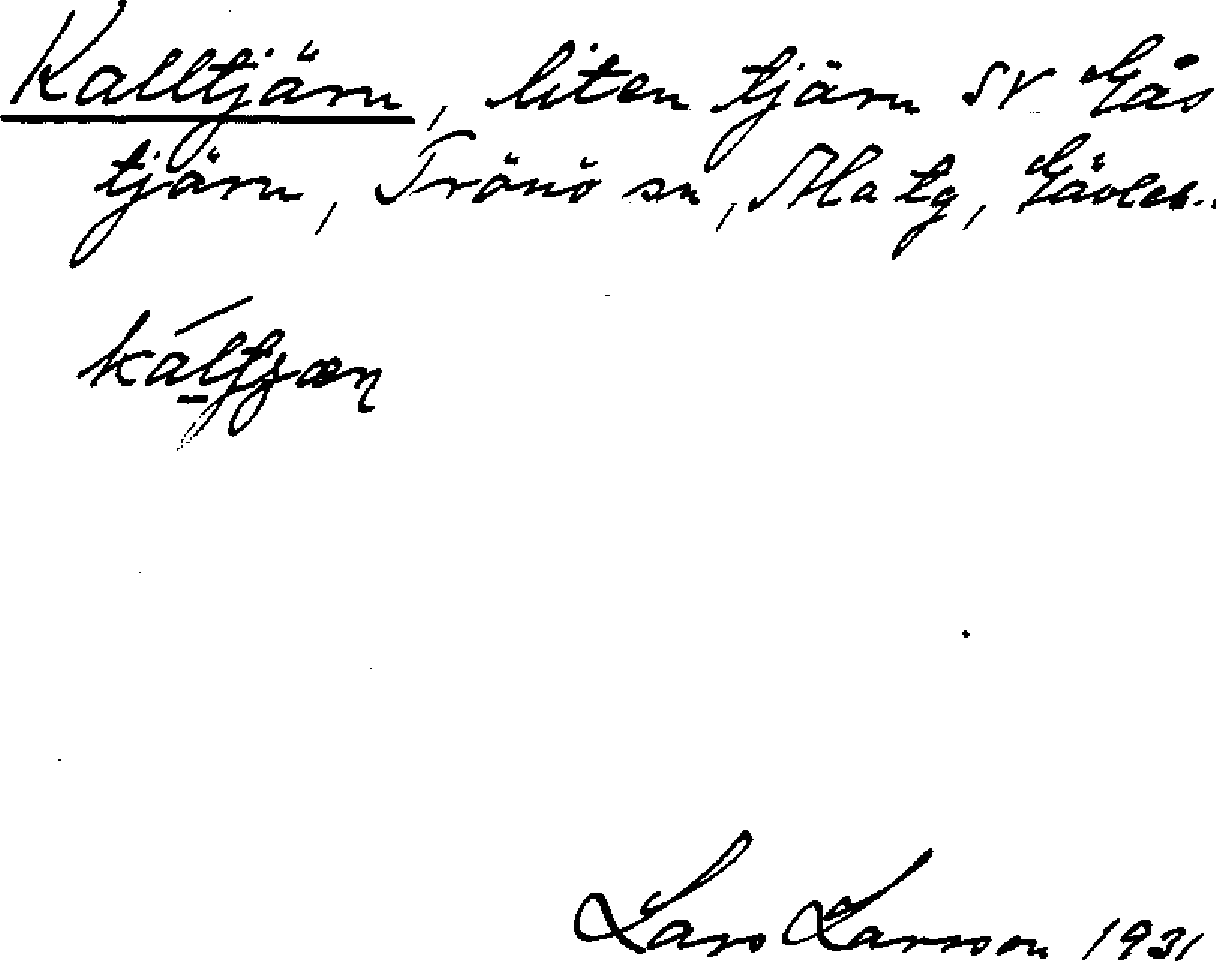 Kalltjärn, liten tjärn SV Gås
tjärn, Trönö sn, Ala tg, Gävleb.
Lars Larsson 1931